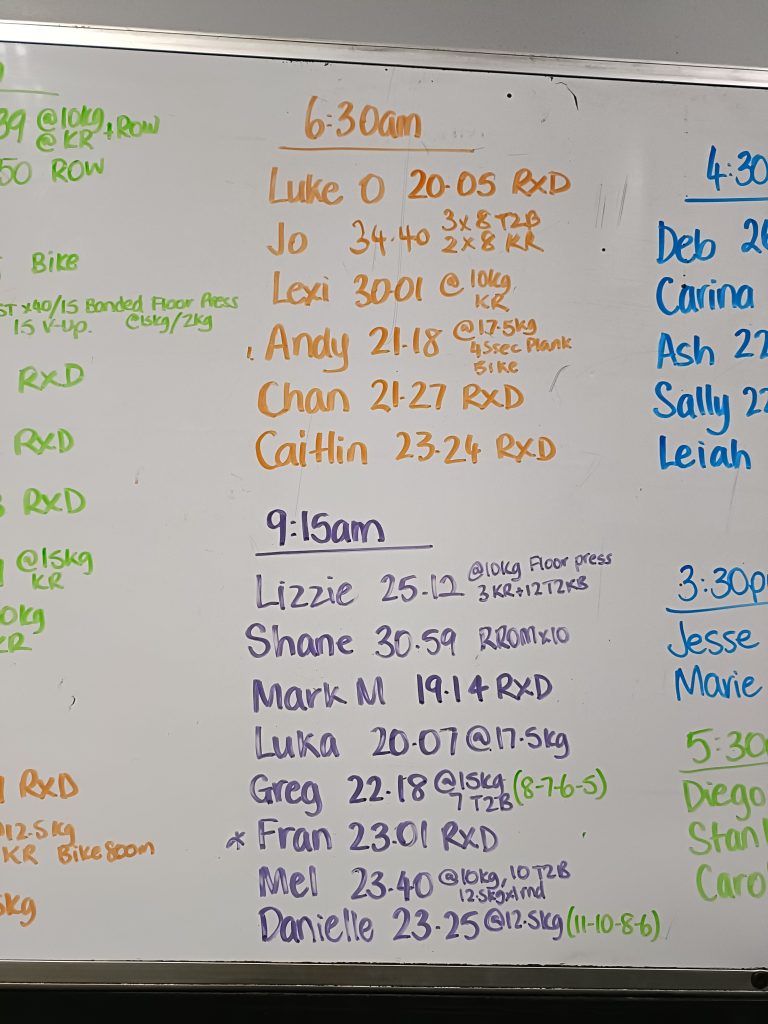 39 @10kg + ROW
@ KR
50 ROW
Bike
ST x40/15 Banded Floor Press
15 V-Up. @15kg/2kg
RXD
RXD
RXD
@15kg
KR
0kg
KR
RXD
12.5kg
KR Bike 800m
5kg
6:30am
Luke O 20.05 RXD
Jo 34.40 3x8 T2B
2x8 KR
Lexi 30.01 @ 10kg
KR
Andy 21.18 @17.5kg
45sec Plank
Bike
Chan 21.27 RXD
Caitlin 23.24 RXD
9:15am
Lizzie 25.12 @10kg Floor press
3KR+12T2KB
Shane 30.59 RROMx10
Mark M 19.14 RXD
Luka 20.07 @17.5kg
Greg 22.18 @15kg (8-7-6-5)
7 T2B
* Fran 23.01 RXD
Mel 23.40 @10kg, 10 T2B
12.5kgx1rnd
Danielle 23.25 @12.5kg (11-10-8-6)
4:30
Deb 26
Carina
Ash 22
Sally 22
Leiah
3:30p
Jesse
Marie
5:30
Diego
Stan
Caro